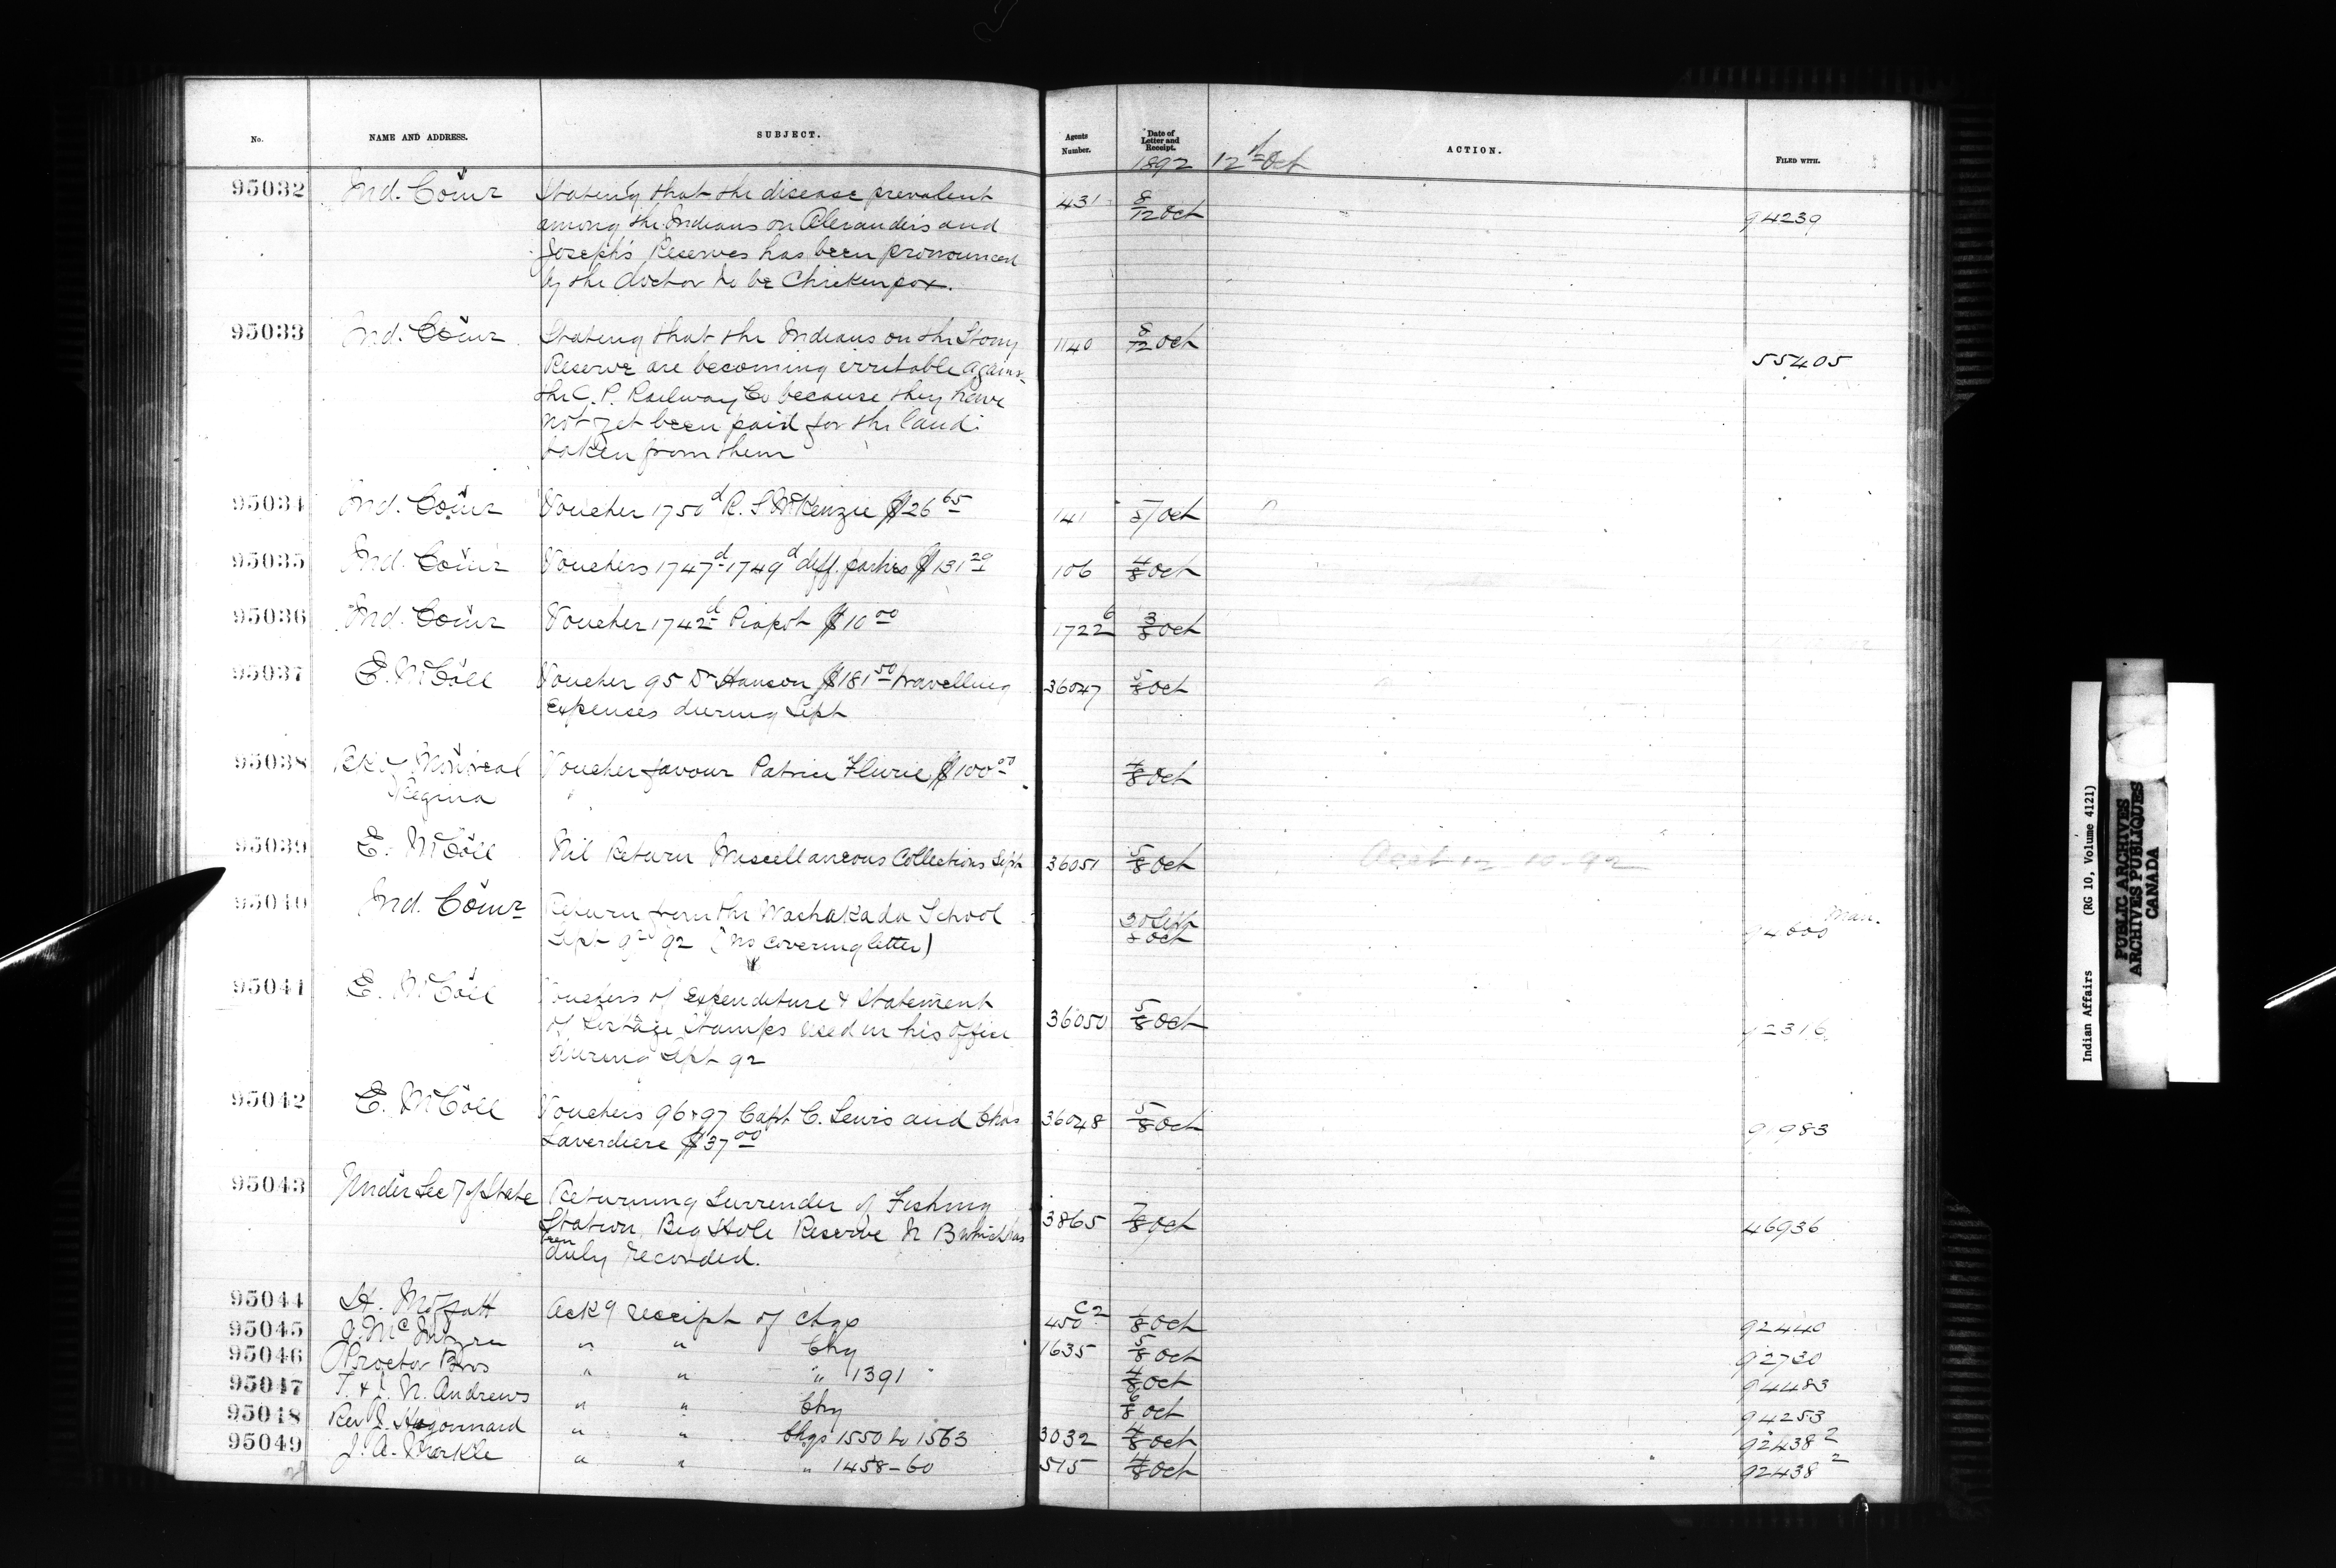 No. NAME AND ADDRESS. SUBJECT. Agents Number. Date of Letter and Receipt. ACTION. FILED WITH.
1892 12th Oct
95032 Ind. Comr Stating that the disease prevalent 431 8/12 Oct 94239
among the Indians on Alexander's and
Joseph's Reserves has been pronounced
by the doctor to be Chickenpox.
95033 Ind. Comr Stating that the Indians on the Stony 1140 8/12 Oct 55405
Reserve are becoming irritable against
the C. P. Railway Co because they have
not yet been paid for the land
taken from them
95034 Ind. Comr Voucher 1750d R. S McKenzie $26 65 141 5/ Oct
95035 Ind. Comr Vouchers 1747d-1749d diff. parties $131 20 106 4/8 Oct
95036 Ind. Comr Voucher 1742d Piapot $10 00 1722 6 3/8 Oct
95037 E. McColl Voucher 95 Dr Hanson $181 50 travelling 36047 5/8 Oct
expenses during Sept
95038 Bk of Montreal Voucher favour Patrice Flurie $100 00 4/8 Oct
Regina
95039 E. McColl Nil Return Miscellaneous Collections Sept 36051 5/8 Oct 12-10-92
95040 Ind. Comr Return from the Washakada School 30 Sept 8 Oct Man.
Sept 92 (No covering letter)
95041 E. McColl Vouchers of Expenditure & Statement 36050 5/8 Oct 92316
of Postage Stamps used in his office
during Sept 92
95042 E. McColl Vouchers 96 & 97 Capt C. Lewis and Chas 36048 5/8 Oct 91983
Laverdiere $37 00
95043 Under Secy of State Returning Surrender of Fishing 3865 7/8 Oct 46936
Station, Big Hole Reserve N B which has
been
duly recorded.
95044 H. Moffatt Ackg receipt of chqs 450 C2 1/8 Oct 92440
95045 McIntyre " " Chq 1635 5/8 Oct 92730
95046 Proctor Bros " " " 1391 4/8 Oct 94483
95047 T. & N. Andrews " " Chq 6/8 Oct 94253
95048 Rev J. Hugonnard " " Chqs 1550 to 1563 3032 4/8 Oct 92438 2
95049 J. A. Markle " " " 1458-60 515 4/8 Oct 92438 2
Indian Affairs (RG 10, Volume 4121)
PUBLIC ARCHIVES
ARCHIVES PUBLIQUES
CANADA